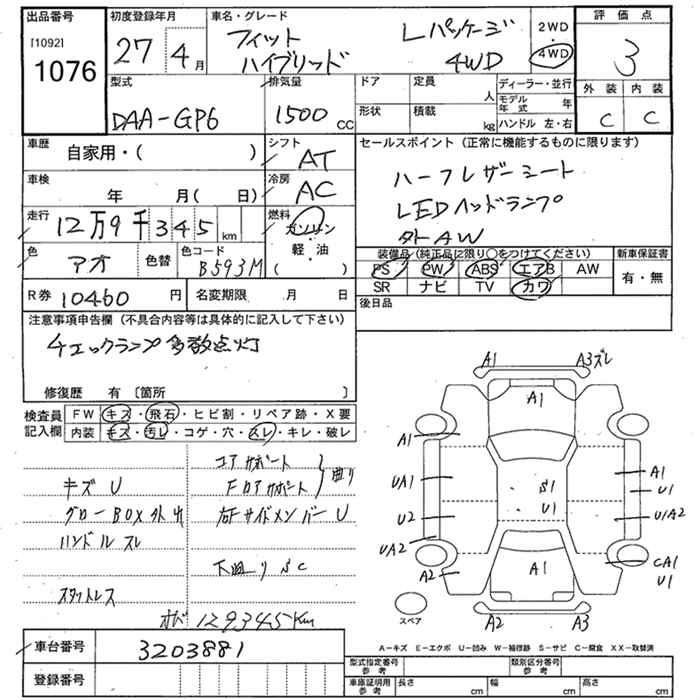 出品番号 初度登録年月 車名・グレード 評価点
[1092]
1076
27年 4月
フィット Lパッケージ
ハイブリッド 4WD
2WD
4WD
3
外装 内装
C C
型式 排気量 ドア 定員 人 ディーラー・並行
DAA-GP6 1500 CC
形状 積載 kg モデル年式 年
ハンドル 左・右
車歴 自家用・( )
シフト AT
セールスポイント (正常に機能するものに限ります)
ハーフレザーシート
LEDヘッドランプ
外AW
車検 年 月( 日)
冷房 AC
走行 12万9千345km
燃料 ガソリン
軽・油
( )
色 アオ 色替 色コード B593M
装備品 (純正品に限り○をつけてください) 新車保証書
PS PW ABS エアB AW 有・無
SR ナビ TV カワ
R券 10460円 名変期限 月 日
後日品
注意事項申告欄 (不具合内容等は具体的に記入して下さい)
チェックランプ多数点灯
修復歴 有 〔箇所 〕
検査員記入欄
FW キズ・飛石・ヒビ割・リペア跡・X要
内装 キズ・汚レ・コゲ・穴・スレ・キレ・破レ
コアサポート
キズU Fロアサポート 曲り
グローBOX外れ 右FサイドメンバーU
ハンドルスレ
下廻りSC
スタットレス
オド129345Km
A1 A3ズレ
A1
A1
UA1 A1
S1 U1
U1
U2 U1A2
UA2
CA1
A2 A1 U1
A2 A3
スペア
A−キズ E−エクボ U−凹み W−補修跡 S−サビ C−腐食 XX−取替済
車台番号 3203881
登録番号
型式指定番号 参考 類別区分番号 参考
車庫証明用 参考 長さ cm 幅 cm 高さ cm